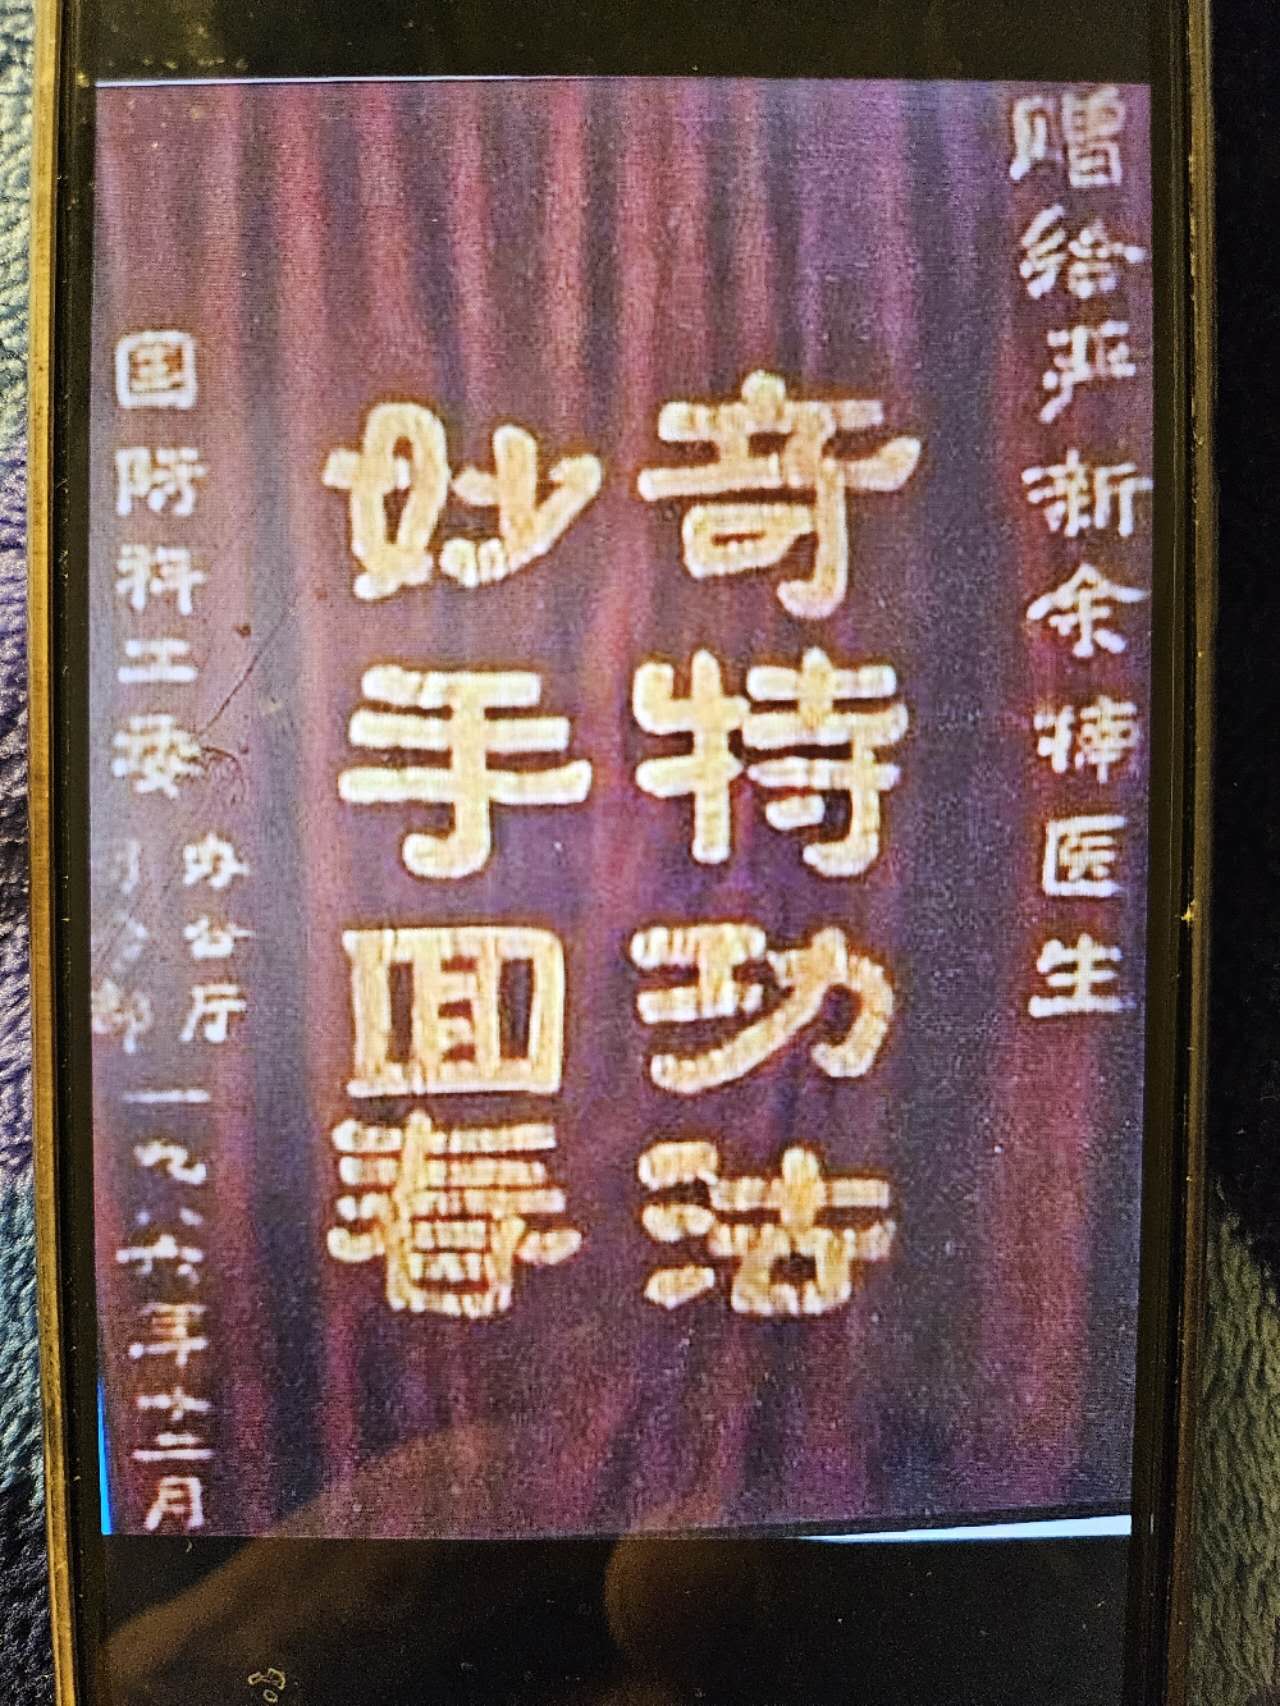 赠给严新余医生
奇特功法
妙手回春
国防科工委
办公厅
一九八六年十二月